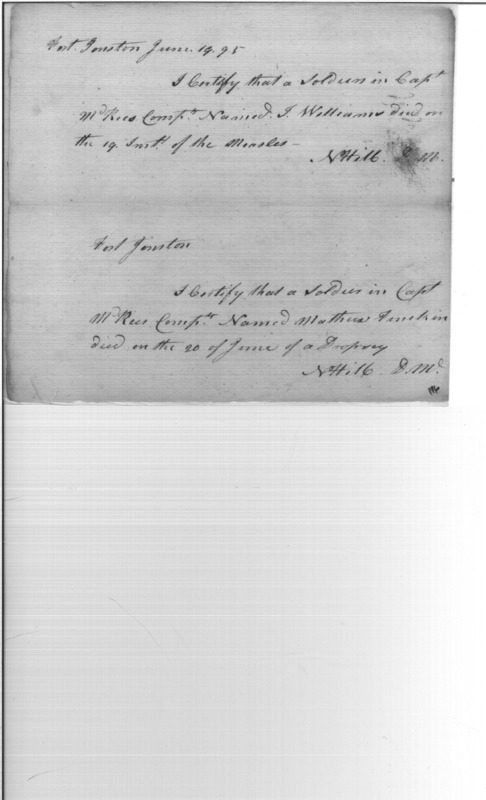 Fort Jonston June. 19. 95
I Certify that a Soldier in Capt
McRees Compy. Named. J. Williams died on
the 19. Inst. of the Measles —
N Hill D. M.
Fort Jonston
I Certify that a Soldier in Capt
McRees Compy. Named Mathew
died on the 20 of June of a Dropsey
N Hill D. Md.